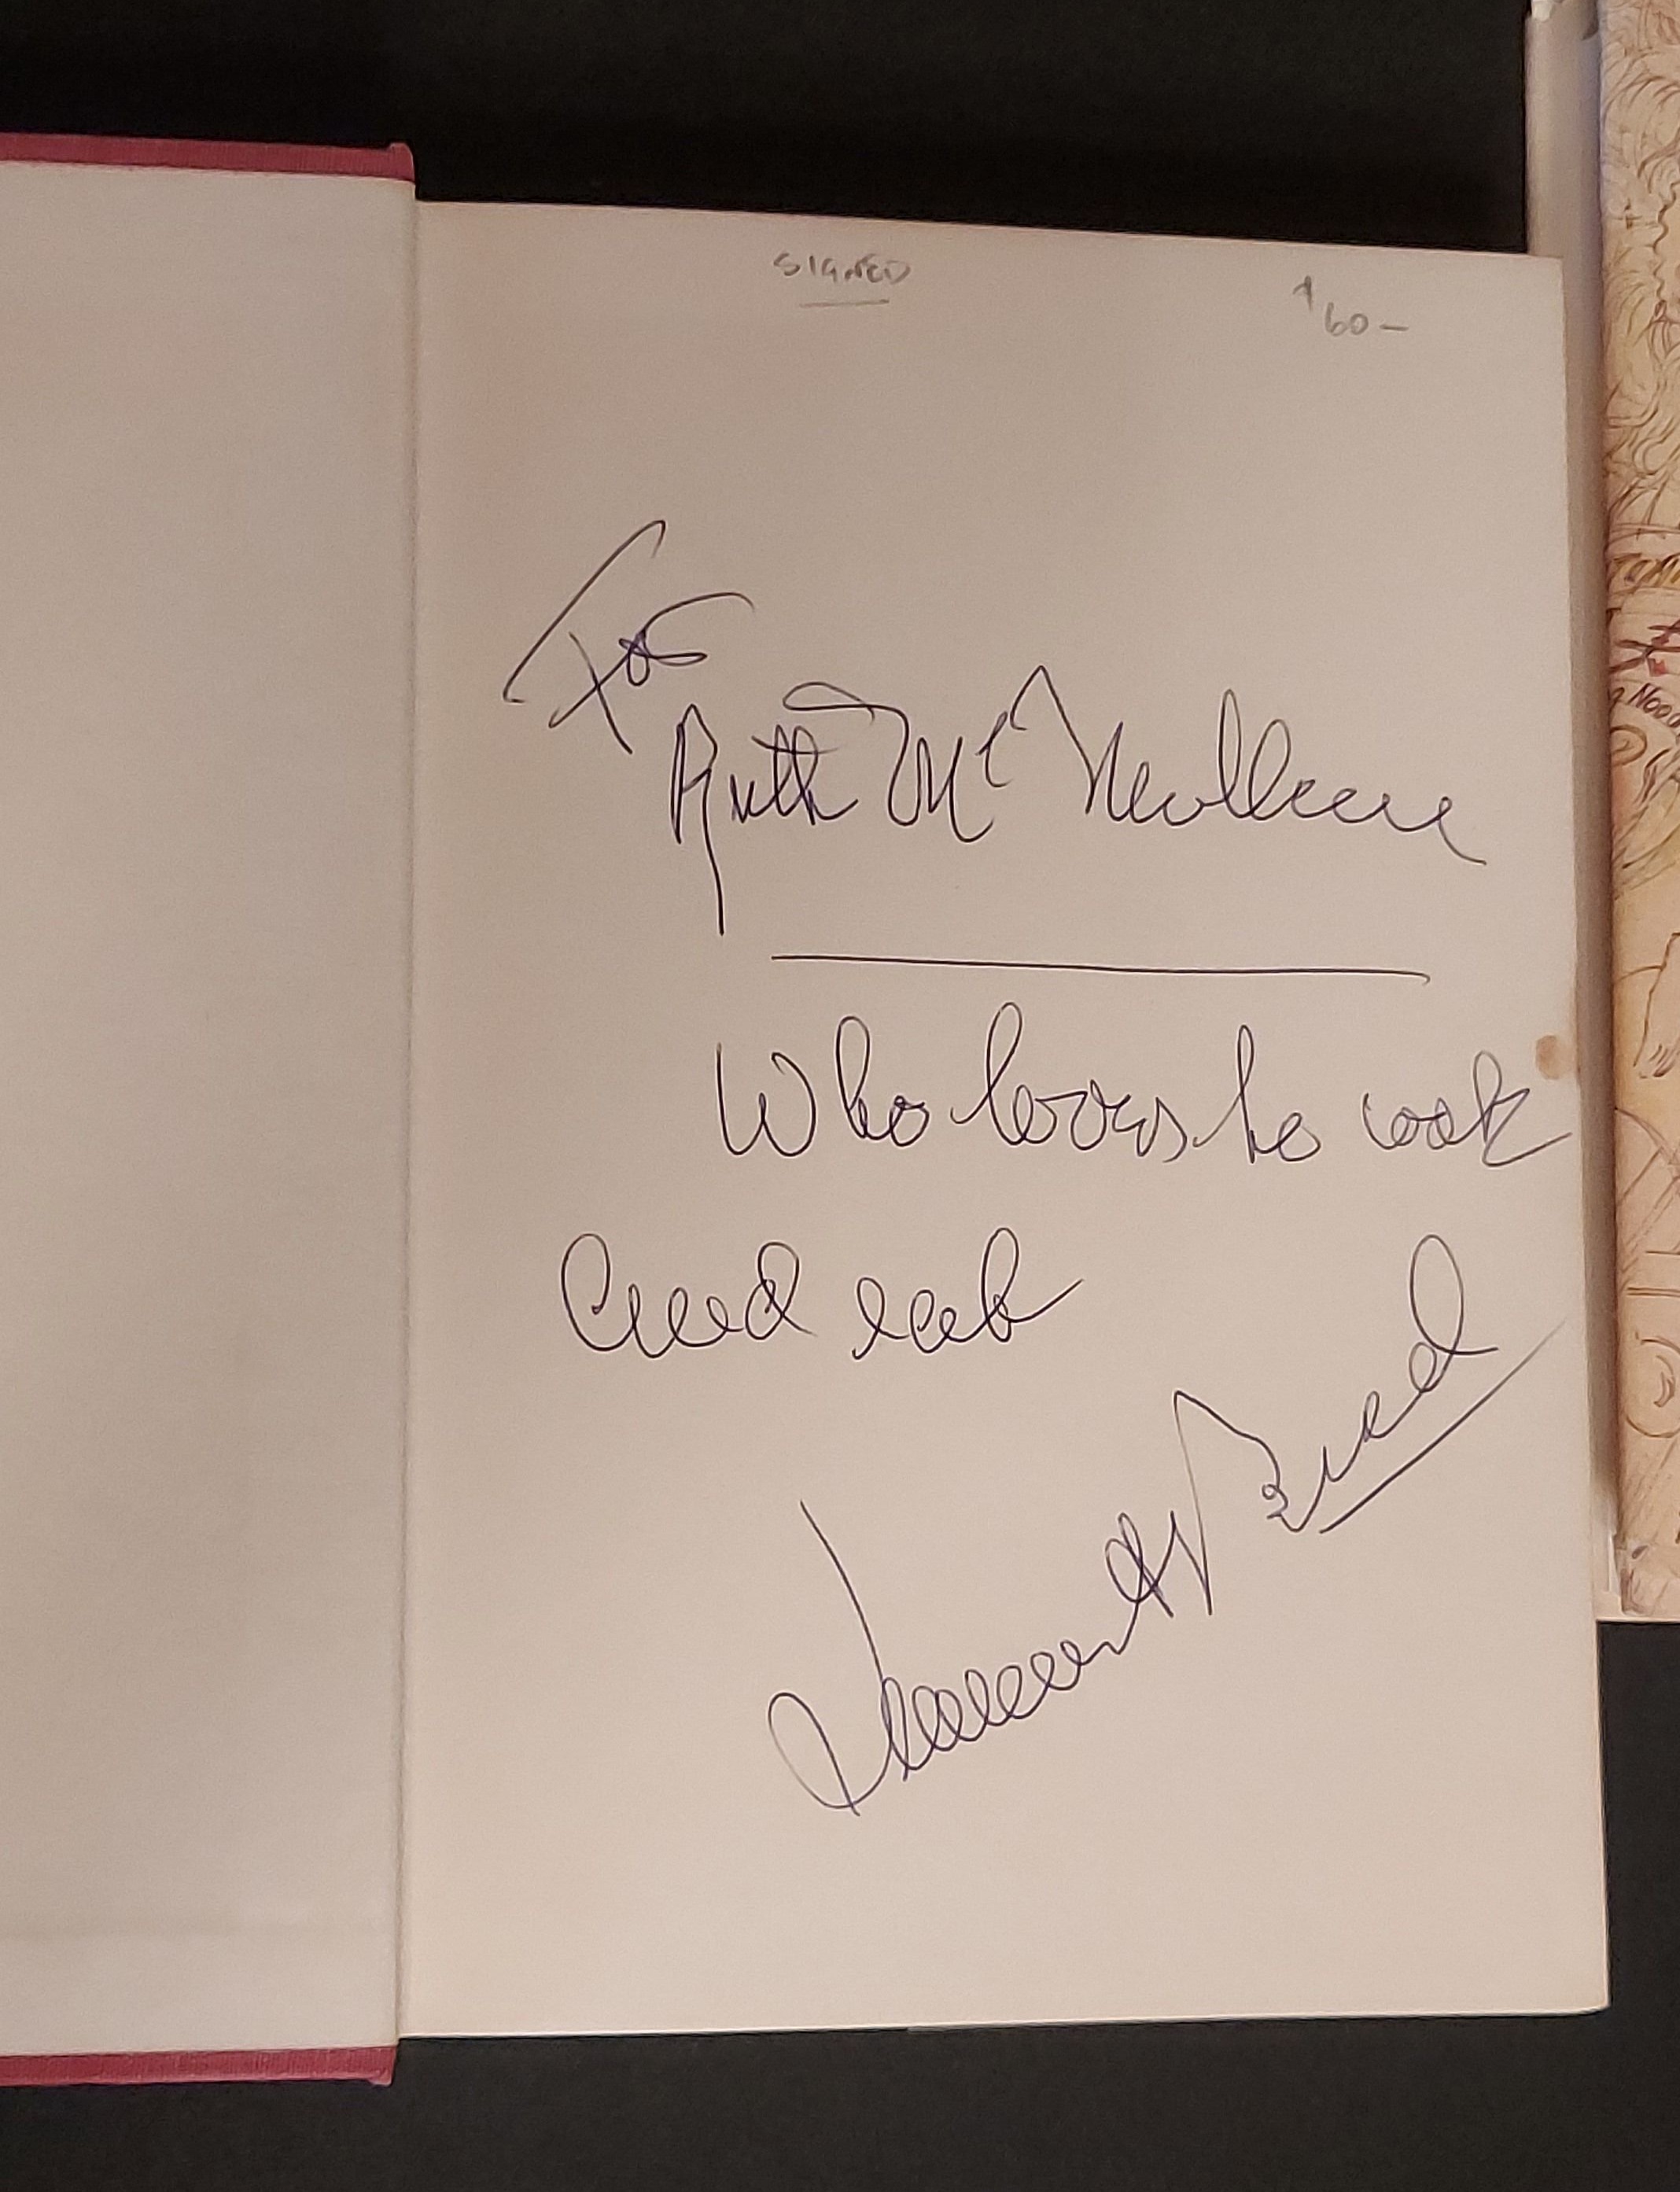 SIGNED
$60-
For
Ruth Mc
Who loves to cook
and eat
James A Beard
Noon